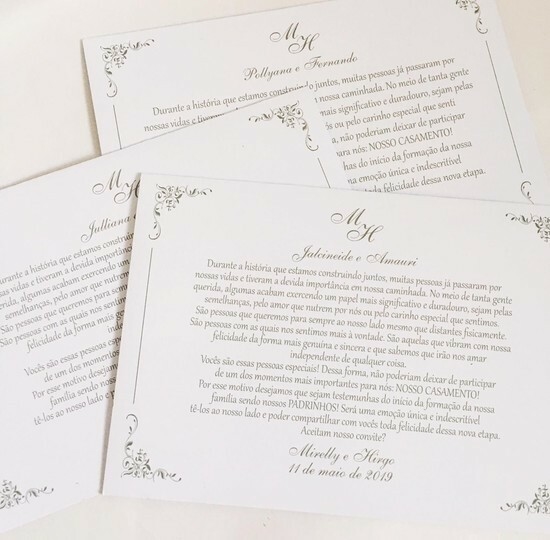 M
H
Pollyana e Fernando
Durante a história que estamos construindo juntos, muitas pessoas já passaram por
nossas vidas e tiveram nossa caminhada. No meio de tanta gente
mais significativo e duradouro, sejam pelas
ós ou pelo carinho especial que senti
a, não poderiam deixar de participar
para nós: NOSSO CASAMENTO!
nhas do início da formação da nossa
uma emoção única e indescritível
da felicidade dessa nova etapa.
M
H
Julliana
Durante a história que estamos construin
nossas vidas e tiveram a devida importânc
querida, algumas acabam exercendo um
semelhanças, pelo amor que nutrem
São pessoas que queremos para sem
São pessoas com as quais nos sentim
felicidade da forma mais g
Vocês são essas pessoas
de um dos momentos
Por esse motivo desejam
família sendo noss
tê-los ao nosso lado e p
M
H
Jalcineide e Amauri
Durante a história que estamos construindo juntos, muitas pessoas já passaram por
nossas vidas e tiveram a devida importância em nossa caminhada. No meio de tanta gente
querida, algumas acabam exercendo um papel mais significativo e duradouro, sejam pelas
semelhanças, pelo amor que nutrem por nós ou pelo carinho especial que sentimos.
São pessoas que queremos para sempre ao nosso lado mesmo que distantes fisicamente.
São pessoas com as quais nos sentimos mais à vontade. São aquelas que vibram com nossa
felicidade da forma mais genuína e sincera e que sabemos que irão nos amar
independente de qualquer coisa.
Vocês são essas pessoas especiais! Dessa forma, não poderiam deixar de participar
de um dos momentos mais importantes para nós: NOSSO CASAMENTO!
Por esse motivo desejamos que sejam testemunhas do início da formação da nossa
família sendo nossos PADRINHOS! Será uma emoção única e indescritível
tê-los ao nosso lado e poder compartilhar com vocês toda felicidade dessa nova etapa.
Aceitam nosso convite?
Mirelly e Hirgo
11 de maio de 2019